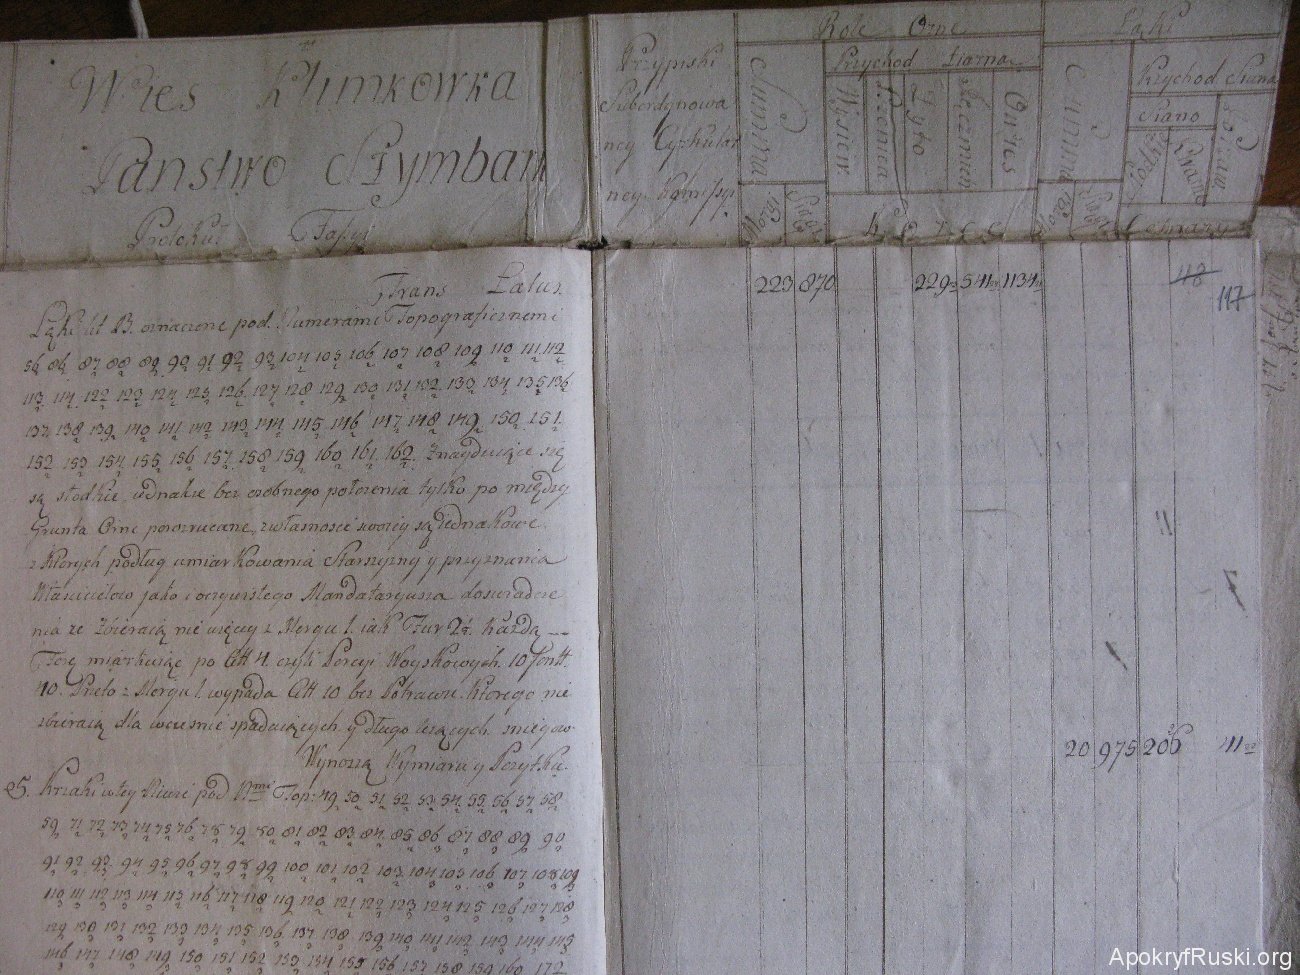 Wies Klimkowka
Panstwo Szymbark
Protokuł Fasyi
Przypiski
Subordynowa
ney Cyrkular
ney Komissyi
Role Orne
Summa
Morgi
Siągi
Przychod Ziarna
Pszenica
Żyto
Jęczmień
Owies
Korce
Łąki
Summa
Morgi
Siągi
Przychod Siana
Siano
Słodkie
Kwaśne
Potraw
Cetnary
Trans Latus
223 870 229 541 1134
118
117
Łąki lit B. oznaczone pod Numerami Topograficznemi
56 86 87 88 89 90 91 92 93 104 105 106 107 108 109 110 111 112
113 114 122 123 124 125 126 127 128 129 130 131 132 133 134 135 136
137 138 139 140 141 142 143 144 145 146 147 148 149 150 151
152 153 154 155 156 157 158 159 160 161 162 Znayduiące się
są słodkie, iednakże bez osobnego położenia tylko po między
Grunta Orne porozrucane, z własnosci swoiey są iednakowe
z ktorych podług umiarkowania Starszyzny y przyznania
Właścicielow jako i oczywistego Mandataryusza doswiadcze
nia że zbieraią nie więcey z Morgu 1. jak Fur 2½. Każdą
Furę miarkuiąc po Ctt 4 czyli Porcyi Woyskowych 10 Fontt
40. Przeto z Morgu 1. wypada Ctt 10 bez Potrawu. Ktorego nie
zbieraią dla wcześnie spadaiących y długo leżących sniegow
Wynoszą Wymiaru y Pożytku
20 975 206 411
25. Krzaki w tey Niwie pod Nrmi Top: 49 50 51 52 53 54 55 56 57 58
59 71 72 73 74 75 76 78 79 80 81 82 83 84 85 86 87 88 89 90
91 92 93 94 95 96 97 98 99 100 101 102 103 104 105 106 107 108 109
110 111 112 113 114 115 116 117 118 119 120 121 122 123 124 125 126 127 128
129 130 131 132 133 134 135 136 137 138 139 140 141 142 143 144 145
146 147 148 149 150 151 152 153 154 155 156 157 158 159 160 172
ApokryfRuski.org